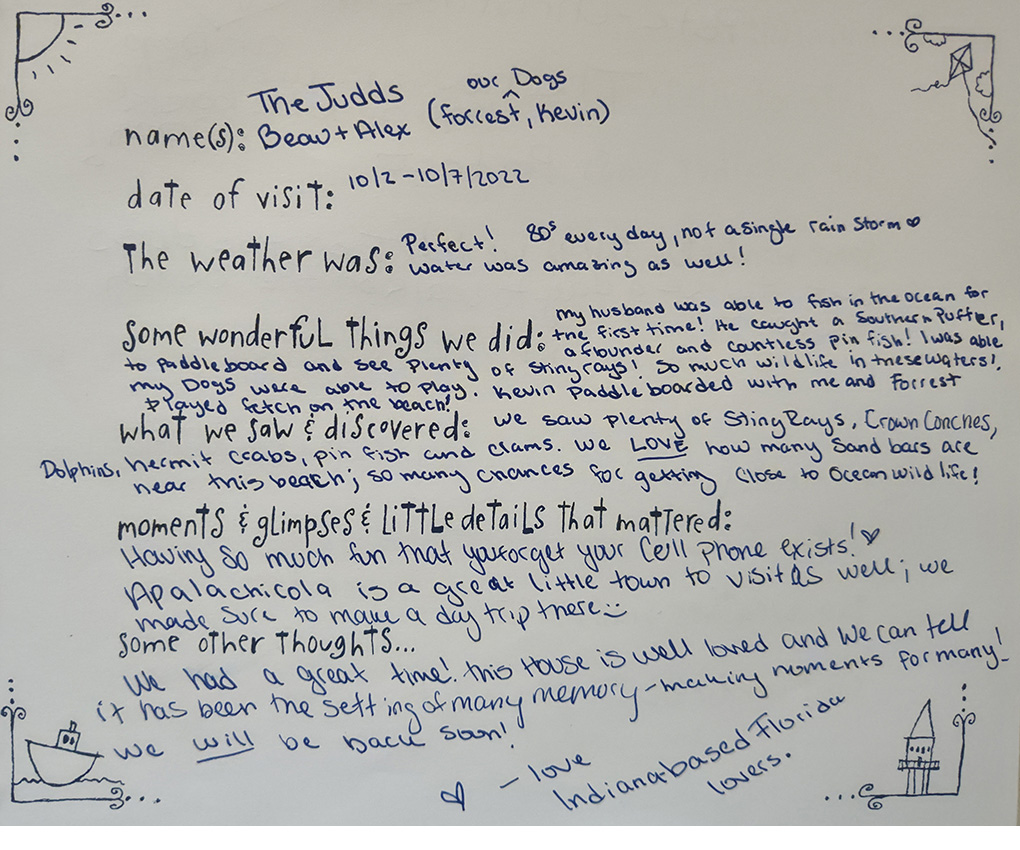 The Judds our Dogs
name(s): Beau + Alex (Forrest, Kevin)
date of visit: 10/2-10/7/2022
The weather was: Perfect! 80s every day, not a single rain storm ♥
water was amazing as well!
some wonderful things we did: my husband was able to fish in the ocean for
the first time! He caught a Southern Puffer,
a flounder and countless pin fish! I was able
to Paddleboard and see Plenty of Stingrays! So much wildlife in these waters!
my Dogs were able to play. Kevin Paddleboarded with me and Forrest
Played fetch on the beach!
what we saw & discovered: we saw plenty of StingRays, Crown Conches,
Dolphins, hermit crabs, pin fish and clams. we LOVE how many Sand bars are
near this beach; so many chances for getting Close to Ocean wildlife!
moments & glimpses & little details that mattered:
Having so much fun that you forget your Cell phone exists! ♥
Apalachicola is a great little town to visit as well; we
made sure to make a day trip there :)
some other thoughts...
We had a great time! This House is well loved and we can tell
it has been the setting of many memory-making moments for many!
we will be back soon!
♥ - love
Indiana-based Florida
lovers.